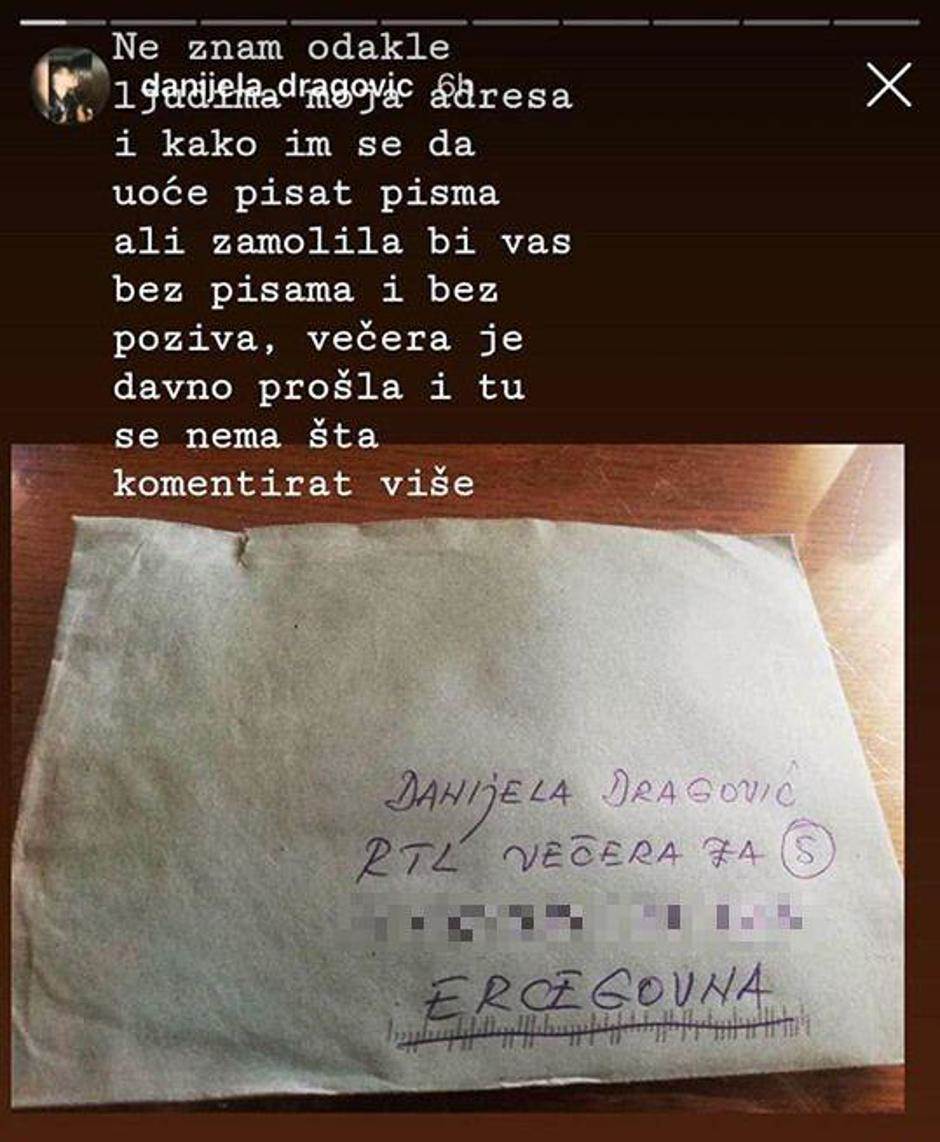 Ne znam odakle
danijela_dragovic 6h
ljudima moja adresa
i kako im se da
uoće pisat pisma
ali zamolila bi vas
bez pisama i bez
poziva, večera je
davno prošla i tu
se nema šta
komentirat više
DANIJELA DRAGOVIĆ
RTL VEČERA ZA 5
ERCEGOVNA